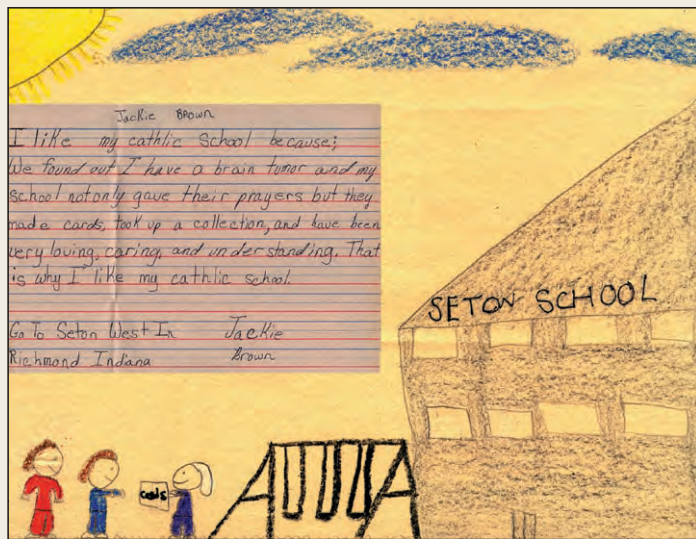 Jackie Brown
I like my cathlic School because;
We found out I have a brain tumor and my
school not only gave their prayers but they
made cards, took up a collection, and have been
very loving, caring, and understanding. That
is why I like my cathlic school.
Go To Seton West In
Richmond Indiana
Jackie
Brown
SETON SCHOOL
cards